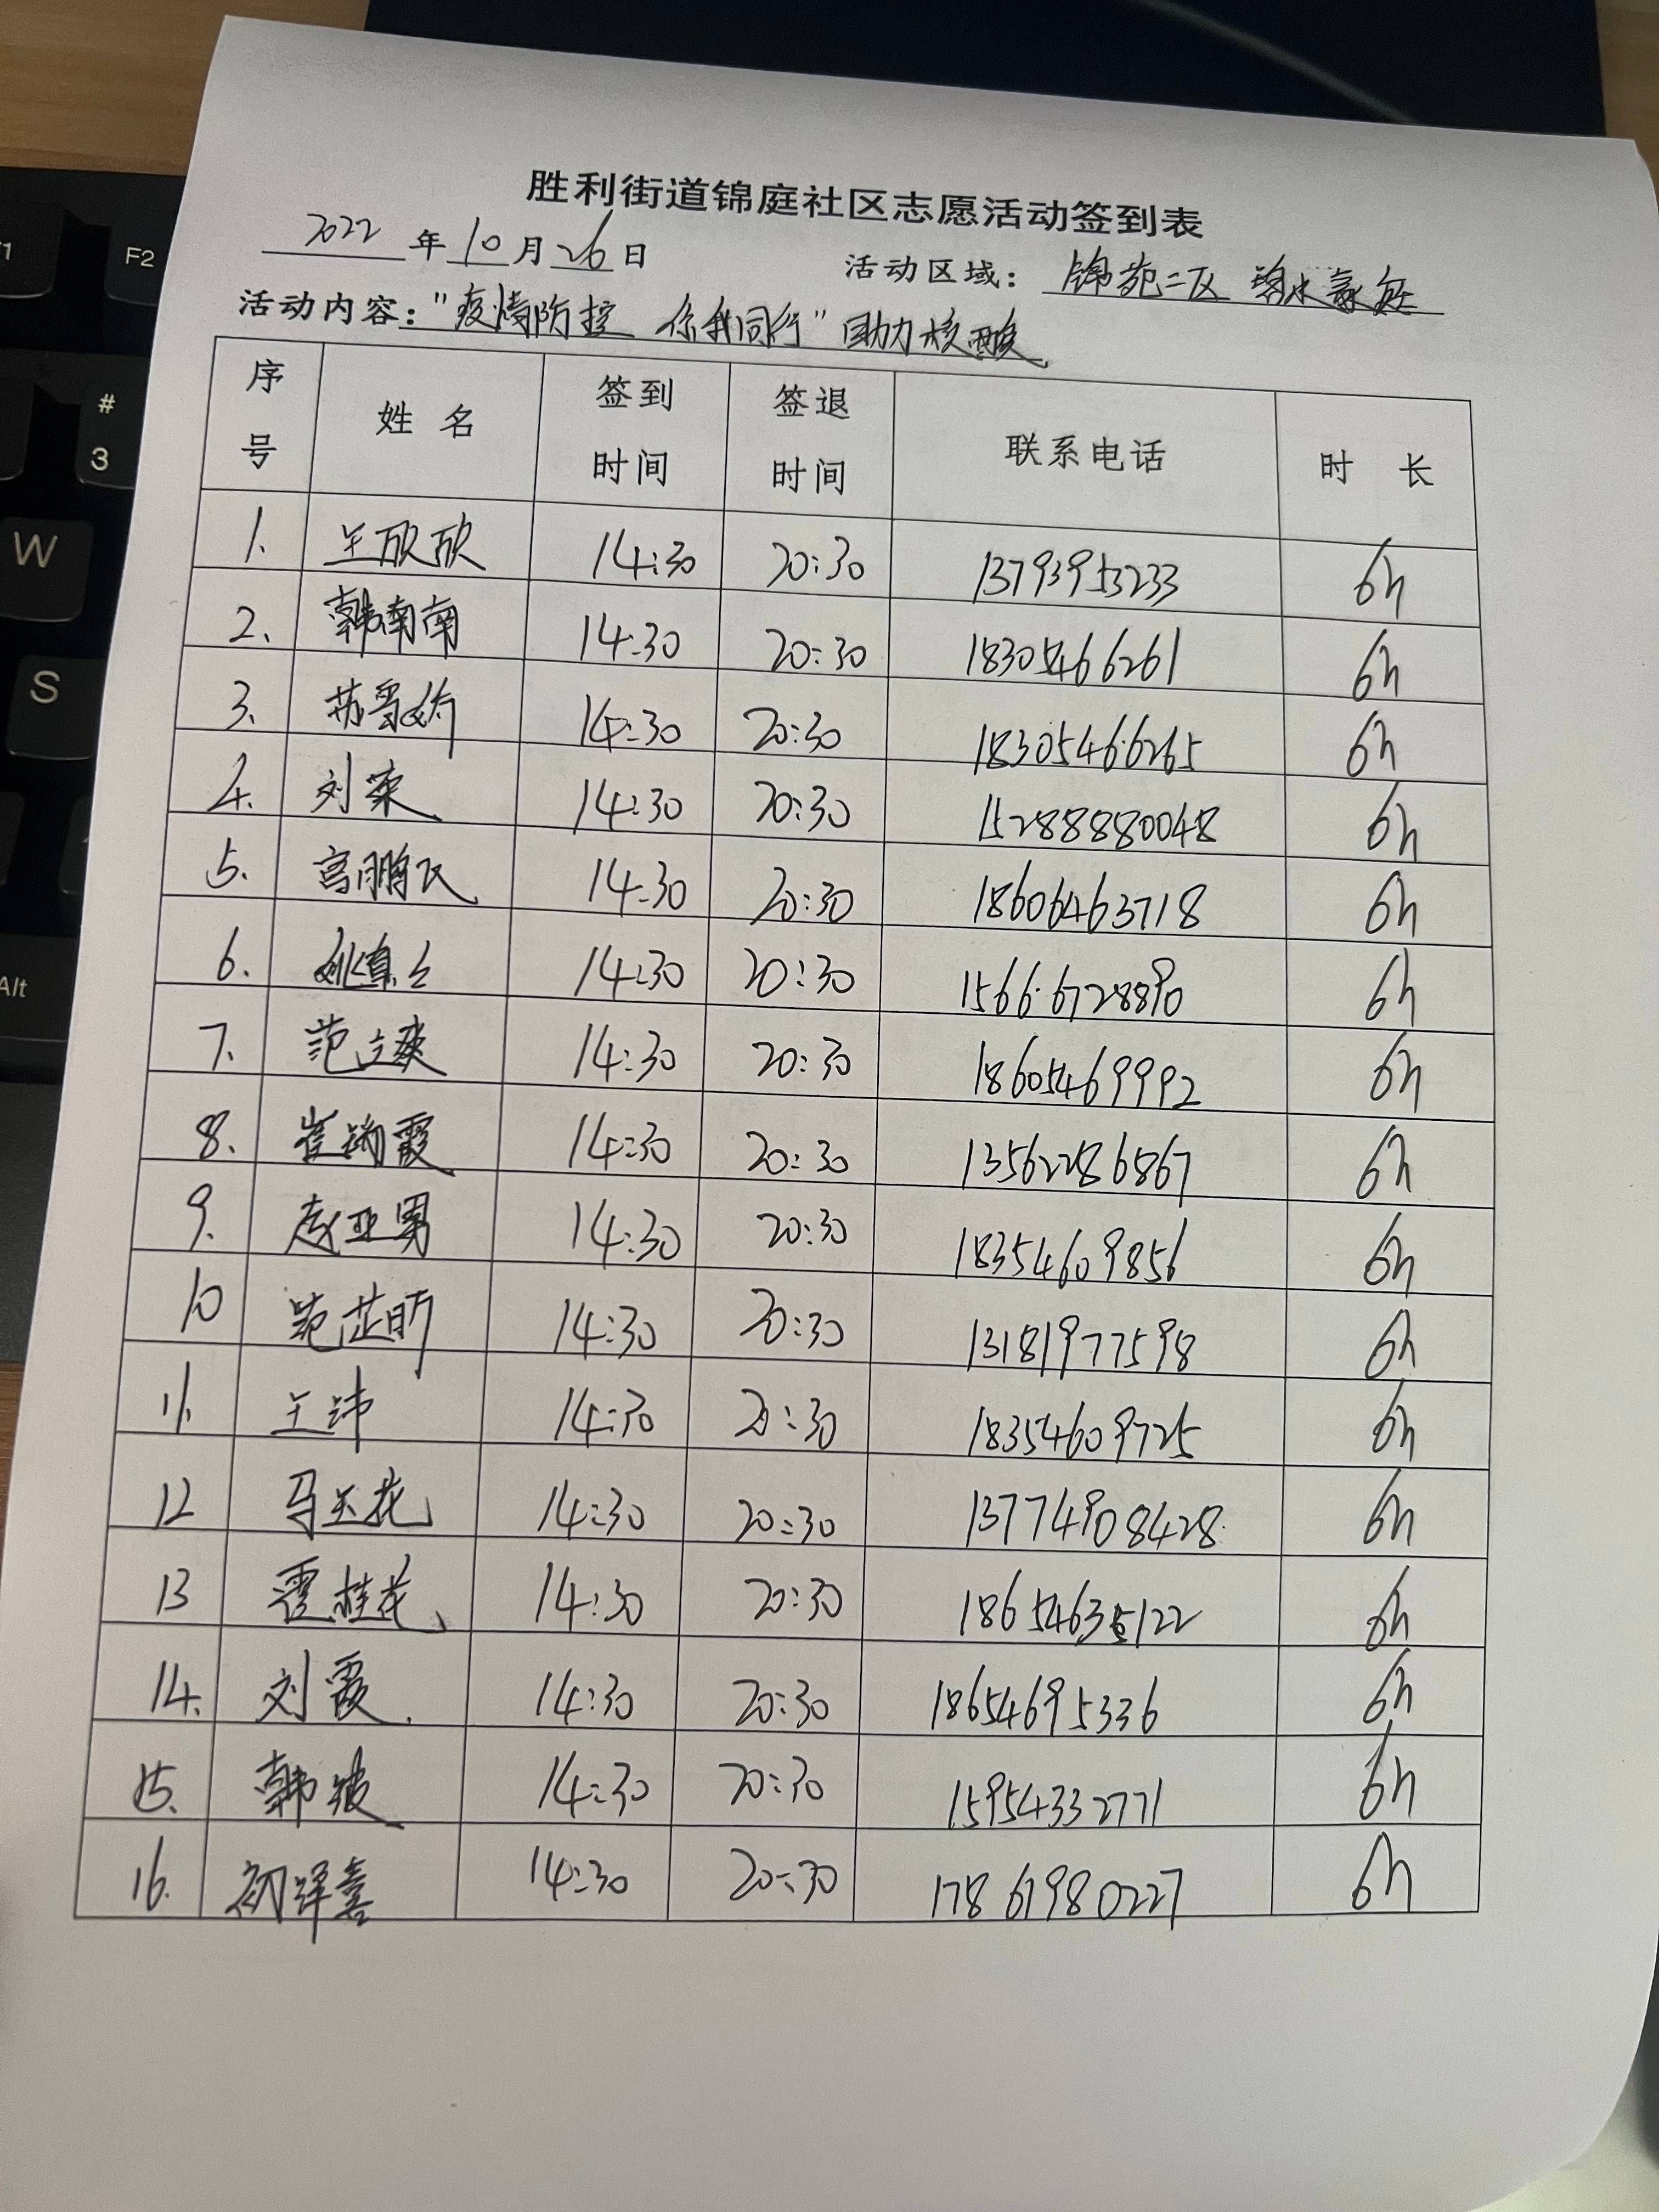 胜利街道锦庭社区志愿活动签到表
2022 年 10 月 26 日 活动区域： 锦苑二区 豪庭
活动内容："疫情防控 你我同行"助力核酸
序号 姓名 签到时间 签退时间 联系电话 时 长
1. 王欣欣 14:30 20:30 13793953233 6h
2. 韩南南 14:30 20:30 18305466261 6h
3. 14:30 20:30 18305466265 6h
4. 刘荣 14:30 20:30 15288880048 6h
5. 宫鹏飞 14:30 20:30 18606463718 6h
6. 14:30 20:30 15666728890 6h
7. 范立爽 14:30 20:30 18605469992 6h
8. 崔娟霞 14:30 20:30 13562286867 6h
9. 赵亚男 14:30 20:30 18354609856 6h
10 范芷昕 14:30 20:30 13181977598 6h
11. 王沛 14:30 20:30 18354609725 6h
12 马玉花 14:30 20:30 13774908428 6h
13 霍桂花 14:30 20:30 18654635122 6h
14. 刘霞 14:30 20:30 18654695336 6h
15. 韩 14:30 20:30 15954332771 6h
16. 初泽喜 14:30 20:30 17861980227 6h
F2
#
3
W
S
Alt